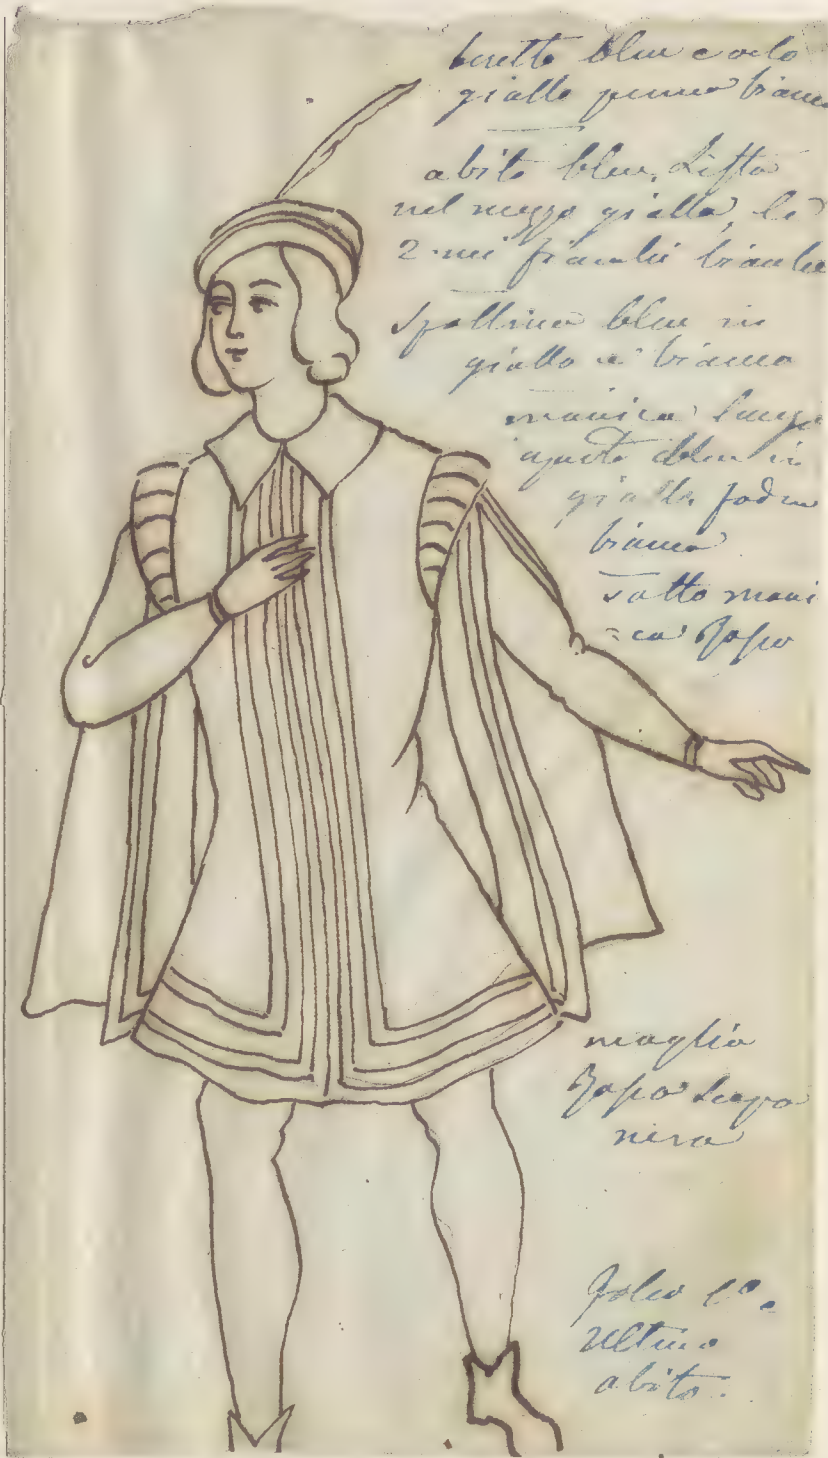 beretto bleu e oclo
giallo penna bianca
abito bleu, Lista
nel mezzo gialla, le
2 nei fianchi bianche
Spallina bleu in
giallo e bianco
manica lunga
aperta bleu in
giallo fodra
bianca
sotto mani
= ca Rossa
maglia
Rossa Scarpa
nera
1a.
Ultimo
abito.